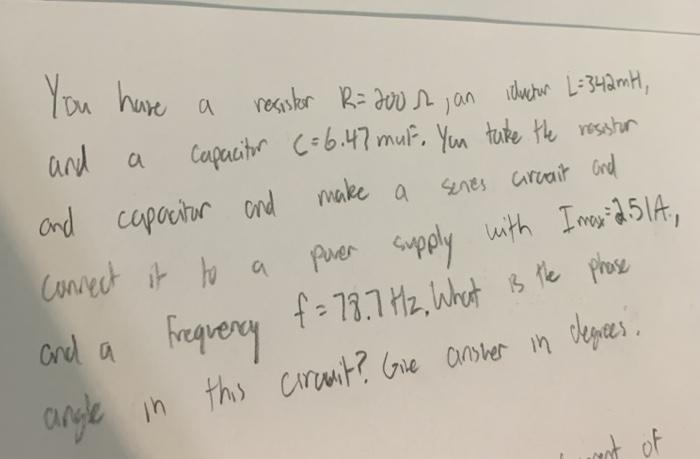 You have a resistor R=200 Ω, an iductor L=342mH,
and a capacitor C=6.47 muF. You take the resistor
and capacitor and make a series circuit and
connect it to a power supply with Imax=2.51A.,
and a frequency f=78.7 Hz. What is the phase
angle in this circuit? Give answer in degrees.
of